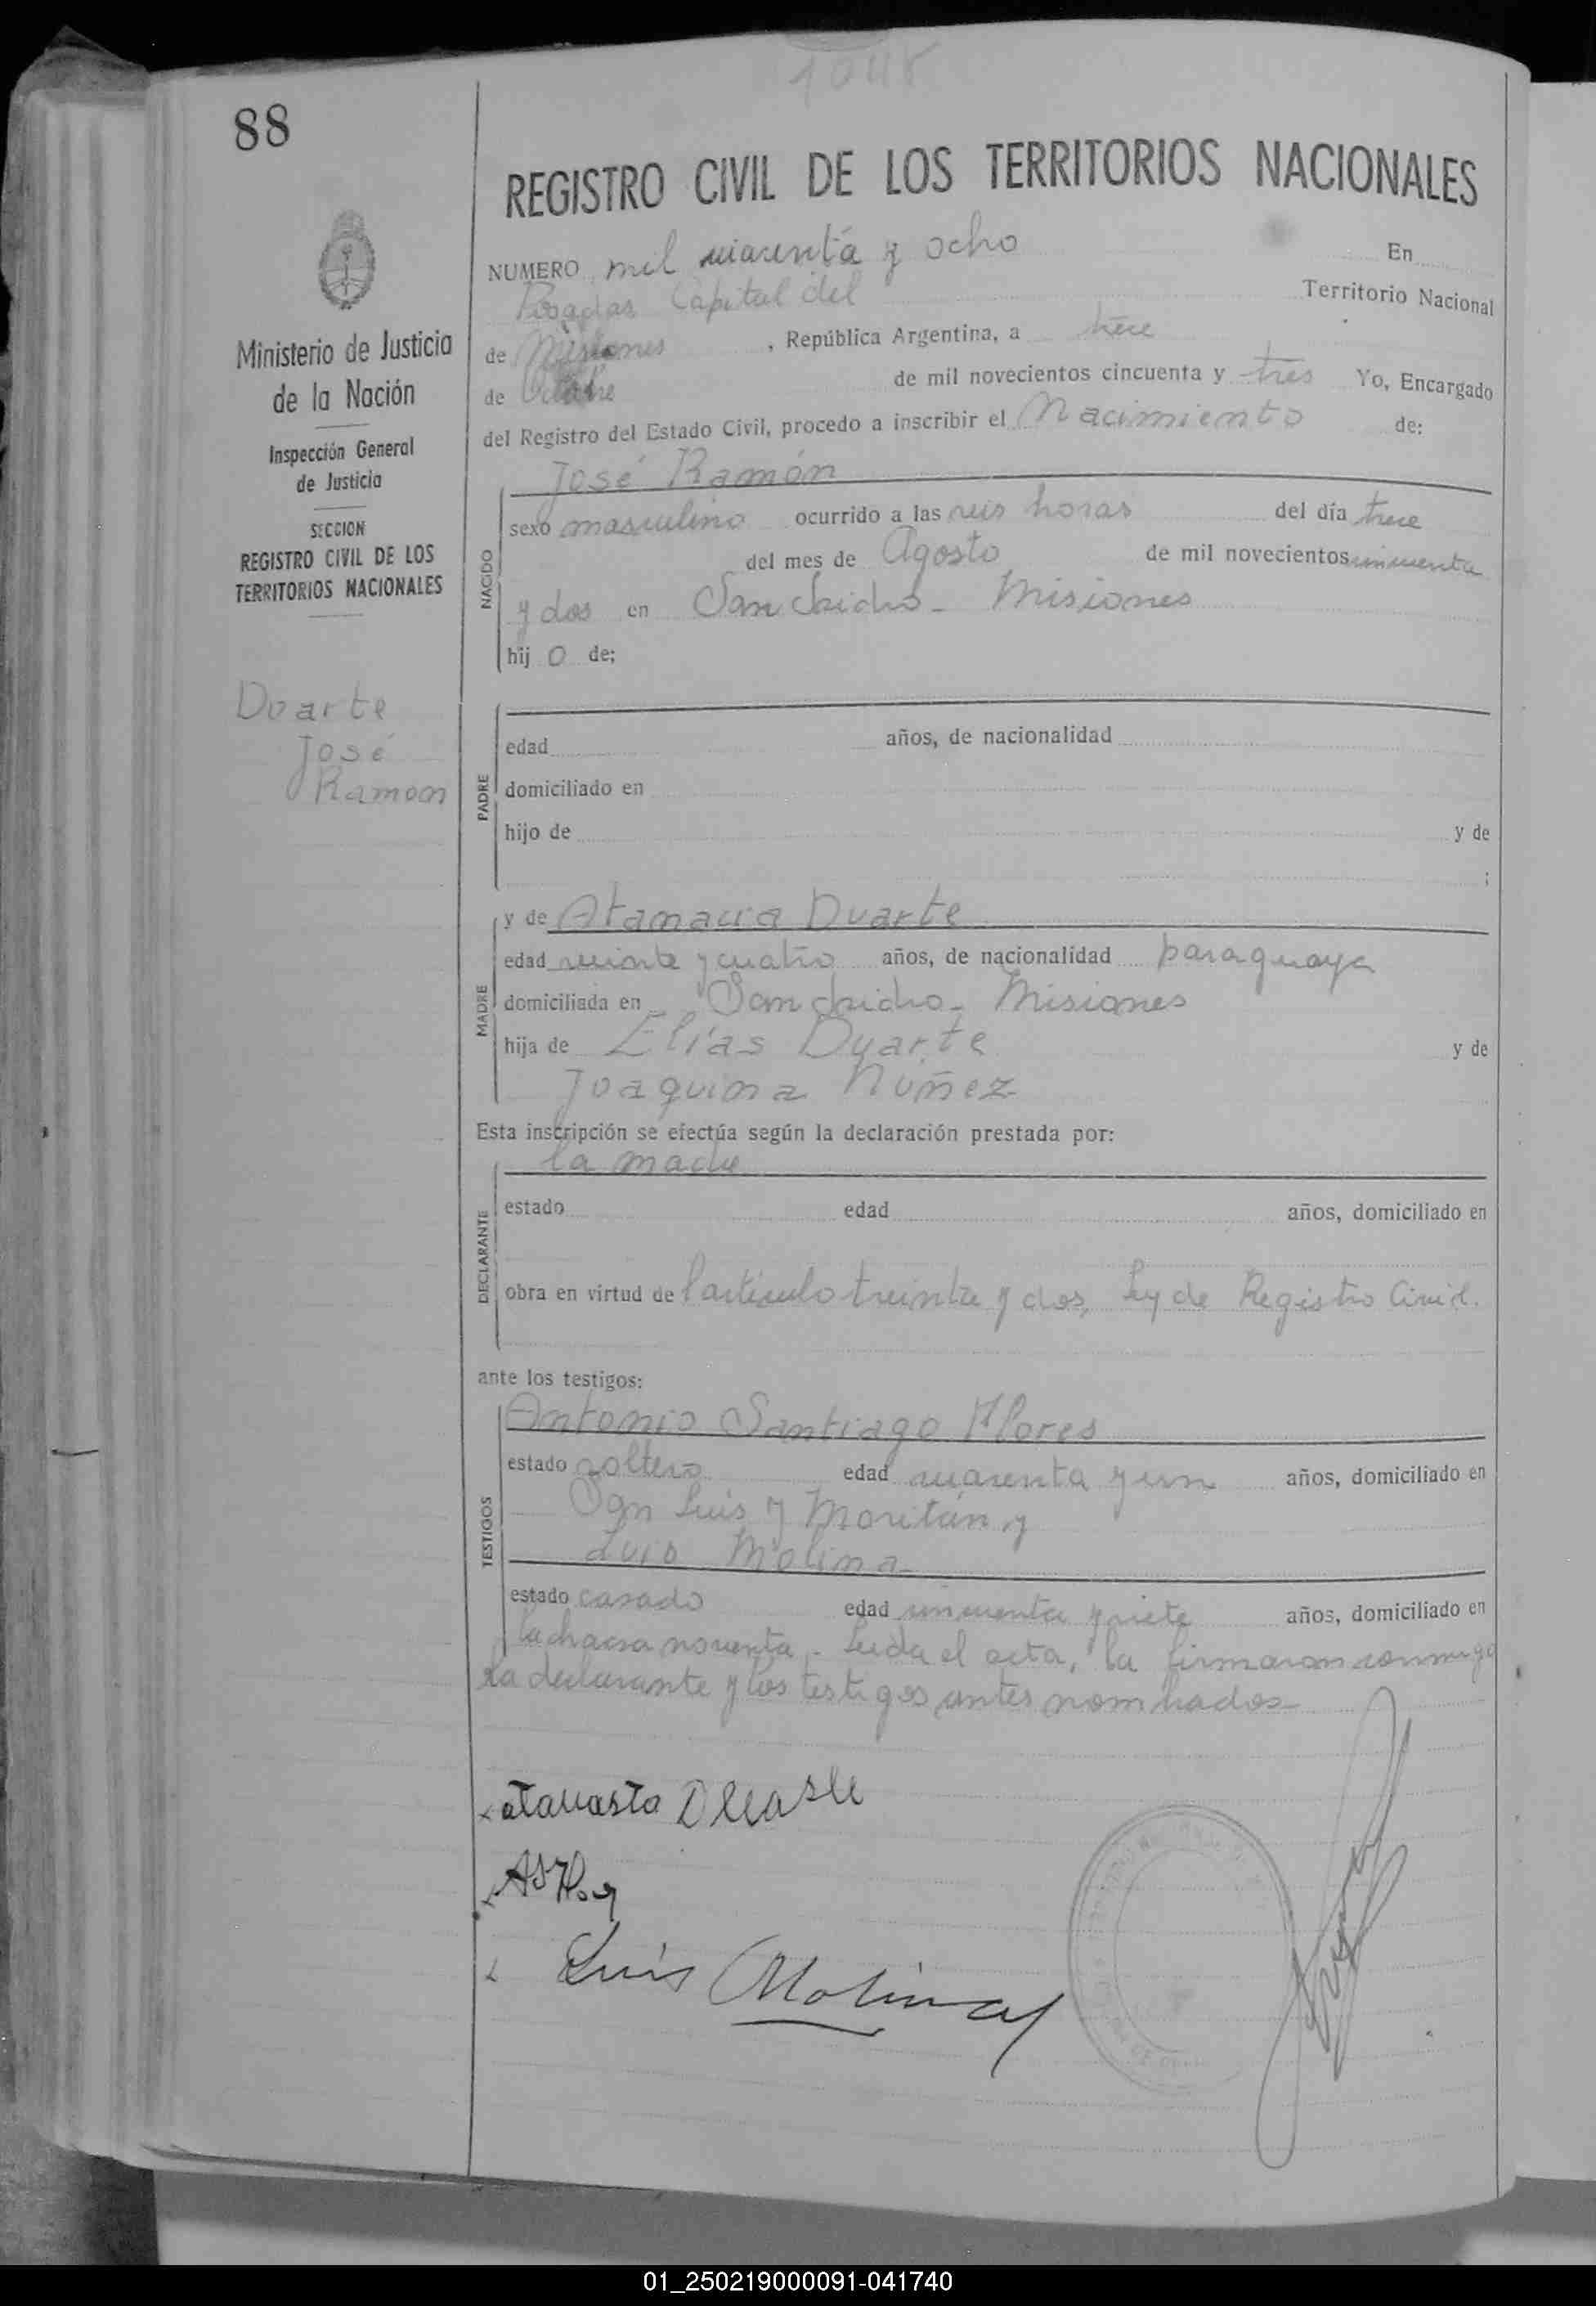 1048
88
REGISTRO CIVIL DE LOS TERRITORIOS NACIONALES
NUMERO mil cuarenta y ocho En
Posadas Capital del Territorio Nacional
de Misiones, República Argentina, a trece
de Octubre de mil novecientos cincuenta y tres Yo, Encargado
del Registro del Estado Civil, procedo a inscribir el Nacimiento de:
Ministerio de Justicia
de la Nación
Inspección General
de Justicia
SECCION
REGISTRO CIVIL DE LOS
TERRITORIOS NACIONALES
Duarte
José
Ramon
NACIDO
José Ramón
sexo masculino ocurrido a las seis horas del día trece
del mes de Agosto de mil novecientos cincuenta
y dos en San Isidro - Misiones
hij o de;
PADRE
edad años, de nacionalidad
domiciliado en
hijo de y de
;
MADRE
y de Atanacia Duarte
edad veinte y cuatro años, de nacionalidad paraguaya
domiciliada en San Isidro - Misiones
hija de Elías Duarte y de
Joaquina Nuñez
Esta inscripción se efectúa según la declaración prestada por:
DECLARANTE
la madre
estado edad años, domiciliado en
obra en virtud de l'articulo treinta y dos, Ley de Registro Civil.
ante los testigos:
TESTIGOS
Antonio Santiago Flores
estado soltero edad cuarenta y un años, domiciliado en
San Luis y Moritán y
Luis Molina
estado casado edad cincuenta y siete años, domiciliado en
la chacra noventa - Leida el acta, la firmaron conmigo
la declarante y los testigos antes nombrados -
Luis Molina
01_250219000091-041740